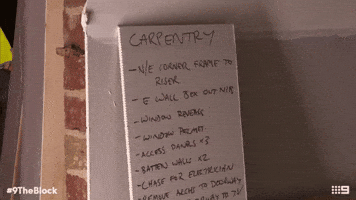 CARPENTRY
- N/E CORNER FRAME TO
RISER
- E WALL BOX OUT N/B
- WINDOW REVEALS
- WINDOW PELMET
- ACCESS PANELS × 3
- BATTEN WALLS X2
- CHASE FOR ELECTRICIAN
ARCHS TO DOORWAY
TO
#9TheBlock
9